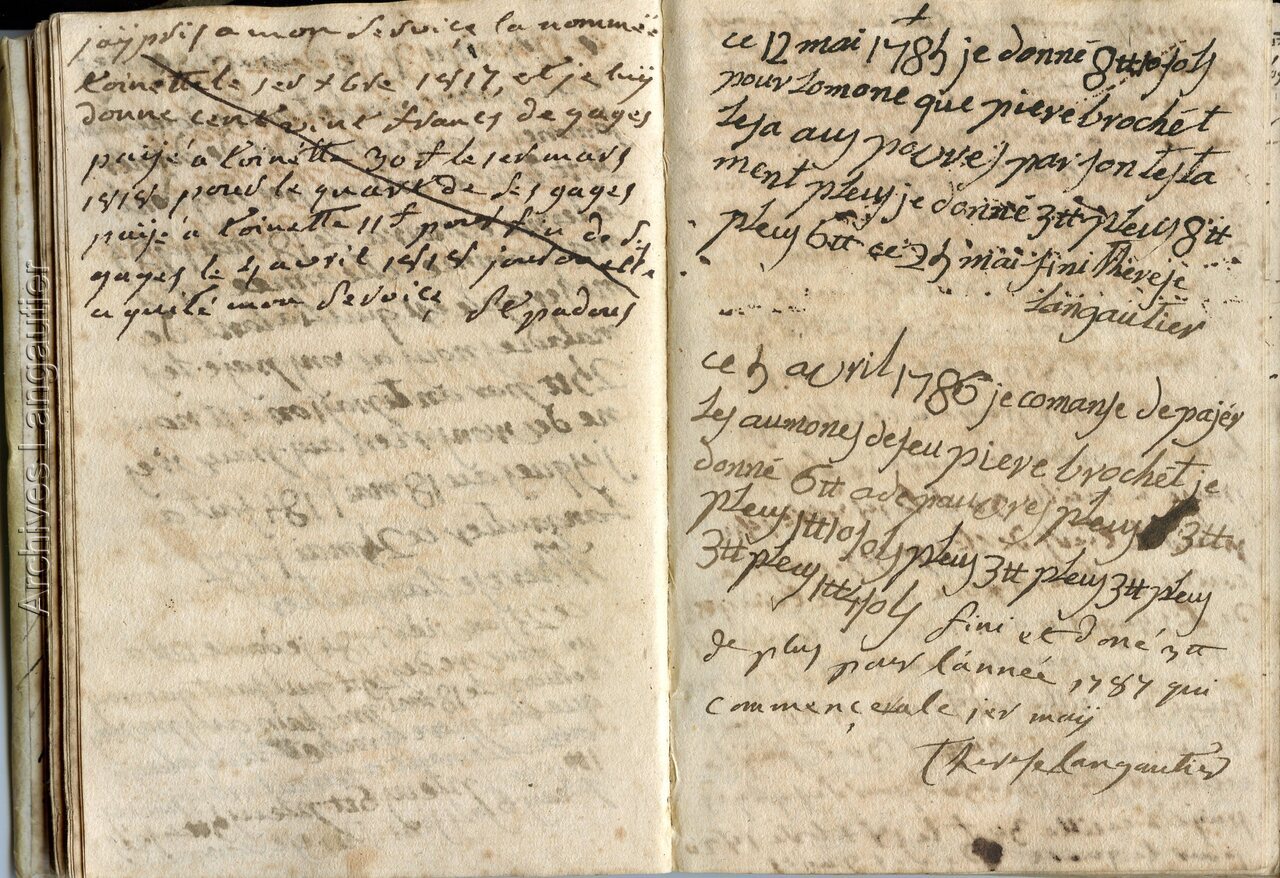 jaÿ pris a mon service la nommée
toinette le 1er xbre 1817, et je luÿ
donne cent vint francs de gages
païjé a toinétte 30 tt le 1er mars
1818 pour le quart de ses gages
païjé à toinette 11 tt pour fin de ses
gages le 4 avril 1818 jour ou elle
a quité mon service
ce 12 mai 1785 je donné 8tt 10 sols
pour lomone que piere brochét
lesa aus pauvres par son testa
ment pleus je donné 3tt pleus 8tt
pleus 6tt ce 25 mai fini therese
langautier
ce 5 avril 1786 je comanse de pajér
les aumones defeu piere brochét je
donné 6tt a de pauvres pleus 3tt
pleus 1tt 10 sols pleus 3tt pleus 3tt pleus
3tt pleus 1tt 4 sols fini et doné 3tt
de plus pour l'année 1787 qui
commençera le 1er maÿ
Therese langautier
Archives Langautier